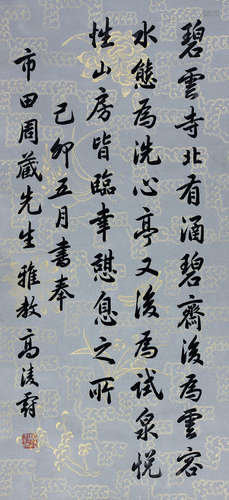 碧雲寺北有涵碧齋後為雲容
水態為洗心亭又後為試泉悅
性山房皆臨幸憩息之所
己卯五月書奉
市田周藏先生雅教高淩霨